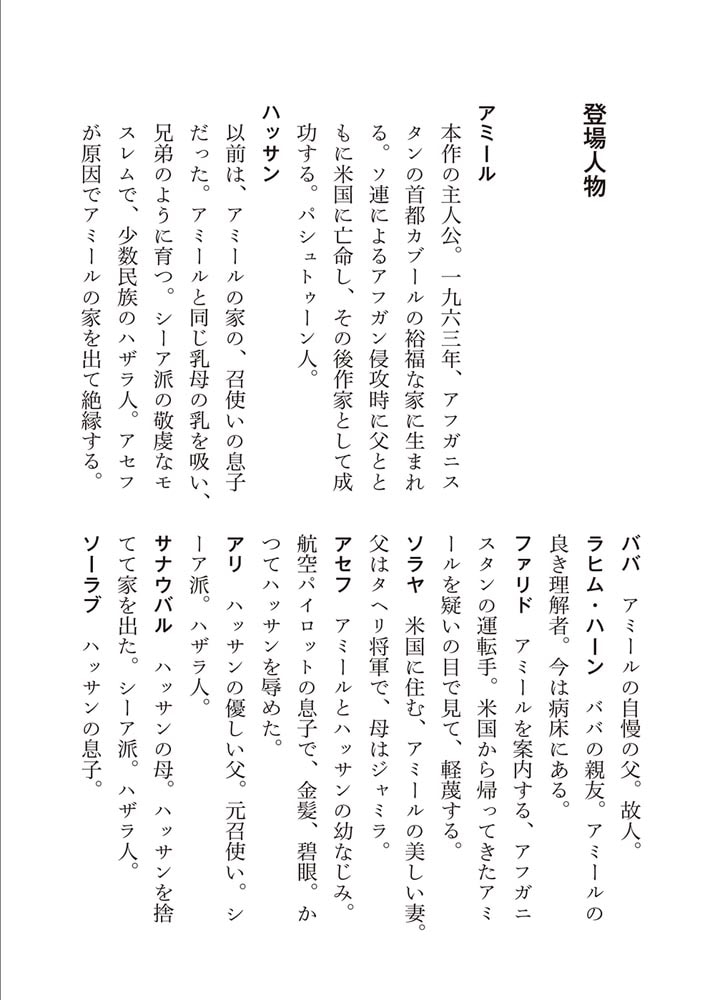 登場人物
アミール
本作の主人公。一九六三年、アフガニス
タンの首都カブールの裕福な家に生まれ
る。ソ連によるアフガン侵攻時に父とと
もに米国に亡命し、その後作家として成
功する。パシュトゥーン人。
ハッサン
以前は、アミールの家の、召使いの息子
だった。アミールと同じ乳母の乳を吸い、
兄弟のように育つ。シーア派の敬虔なモ
スレムで、少数民族のハザラ人。アセフ
が原因でアミールの家を出て絶縁する。
ババ　アミールの自慢の父。故人。
ラヒム・ハーン　ババの親友。アミールの
良き理解者。今は病床にある。
ファリド　アミールを案内する、アフガニ
スタンの運転手。米国から帰ってきたアミ
ールを疑いの目で見て、軽蔑する。
ソラヤ　米国に住む、アミールの美しい妻。
父はタヘリ将軍で、母はジャミラ。
アセフ　アミールとハッサンの幼なじみ。
航空パイロットの息子で、金髪、碧眼。か
つてハッサンを辱めた。
アリ　ハッサンの優しい父。元召使い。シ
ーア派。ハザラ人。
サナウバル　ハッサンの母。ハッサンを捨
てて家を出た。シーア派。ハザラ人。
ソーラブ　ハッサンの息子。